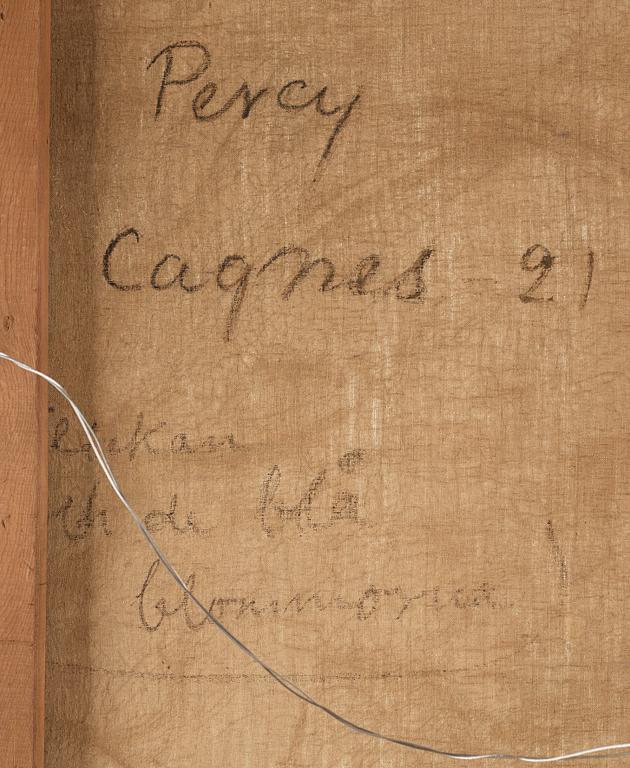 Percy
Cagnes - 21
och de blå
blommorna